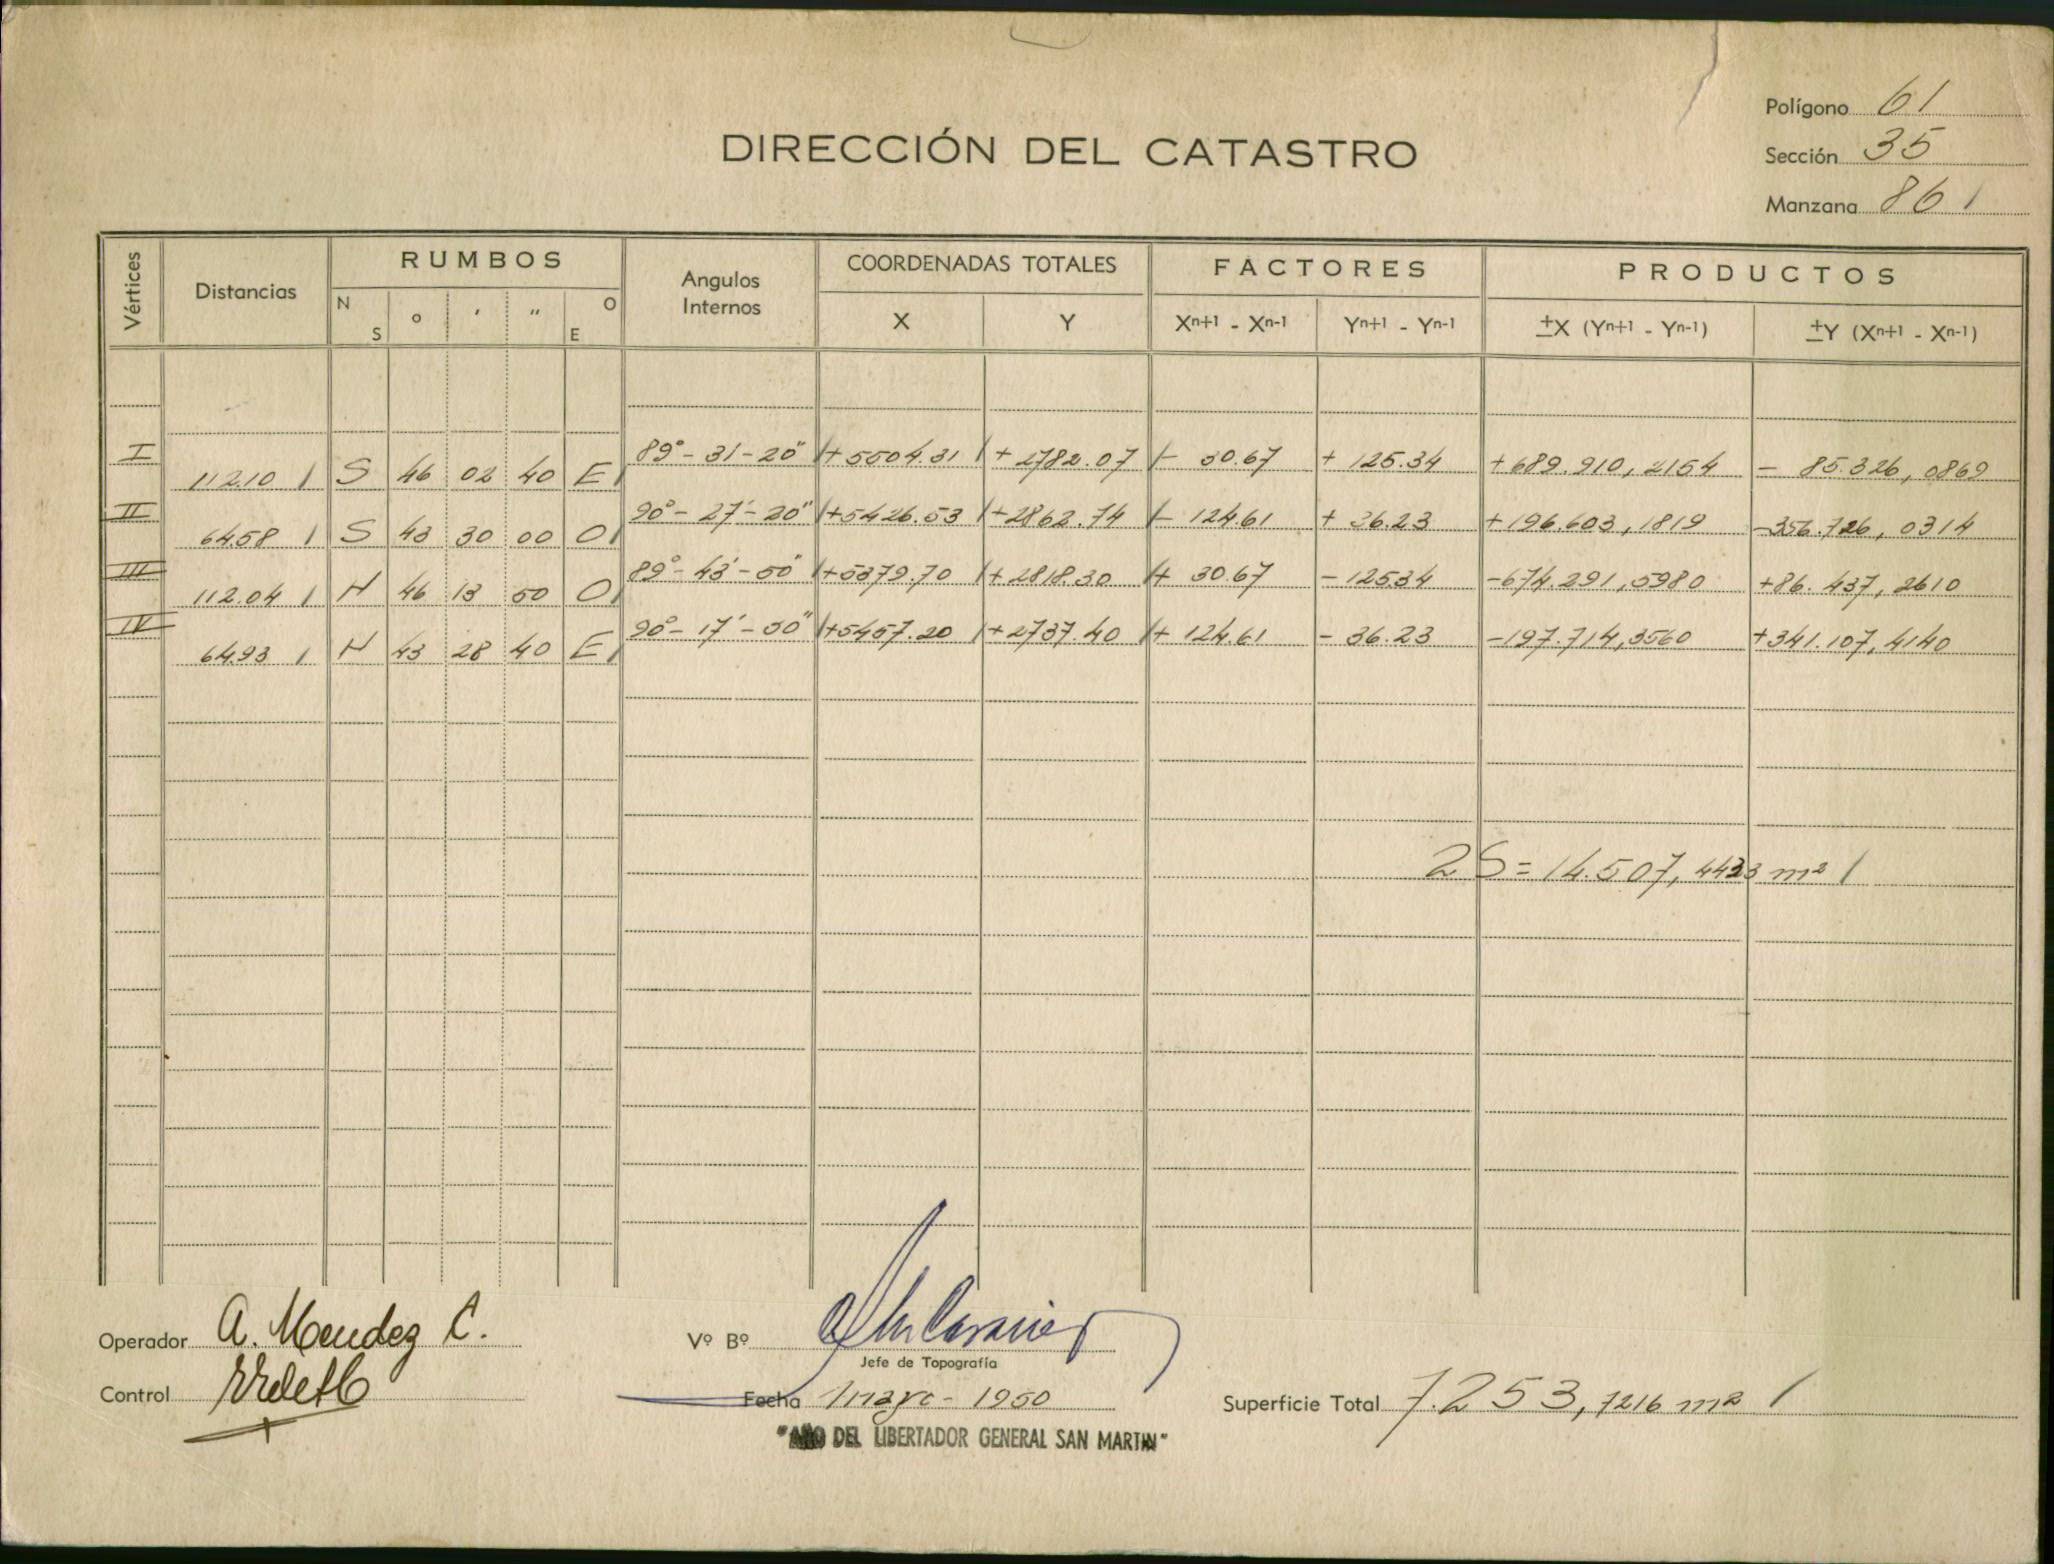 Polígono 61
DIRECCIÓN DEL CATASTRO
Sección 35
Manzana 861
Vértices Distancias RUMBOS Angulos Internos COORDENADAS TOTALES FACTORES PRODUCTOS
N S ° ' " O E X Y Xn+1 - Xn-1 Yn+1 - Yn-1 ±X (Yn+1 - Yn-1) ±Y (Xn+1 - Xn-1)
I 112.10 S 46 02 40 E 89° - 31 - 20" +5504.31 +2782.07 - 30.67 + 125.34 +689.910,2154 - 85.326,0869
II 64.58 S 43 30 00 O 90° - 27' - 20" +5426.53 +2862.74 - 124.61 + 36.23 +196.603,1819 -356.726,0314
III 112.04 N 46 13 50 O 89° - 43' - 50" +5379.70 +2818.30 + 30.67 - 125.34 -674.291,5980 +86.437,2610
IV 64.93 N 43 28 40 E 90° - 17' - 30" +5457.20 +2737.40 + 124.61 - 36.23 -197.714,3560 +341.107,4140
2S = 14.507,4433 m²
Operador A. Mendez C. Vº Bº
Jefe de Topografía
Control Fecha Mayo - 1950 Superficie Total 7.253,7216 m²
"AÑO DEL LIBERTADOR GENERAL SAN MARTIN"